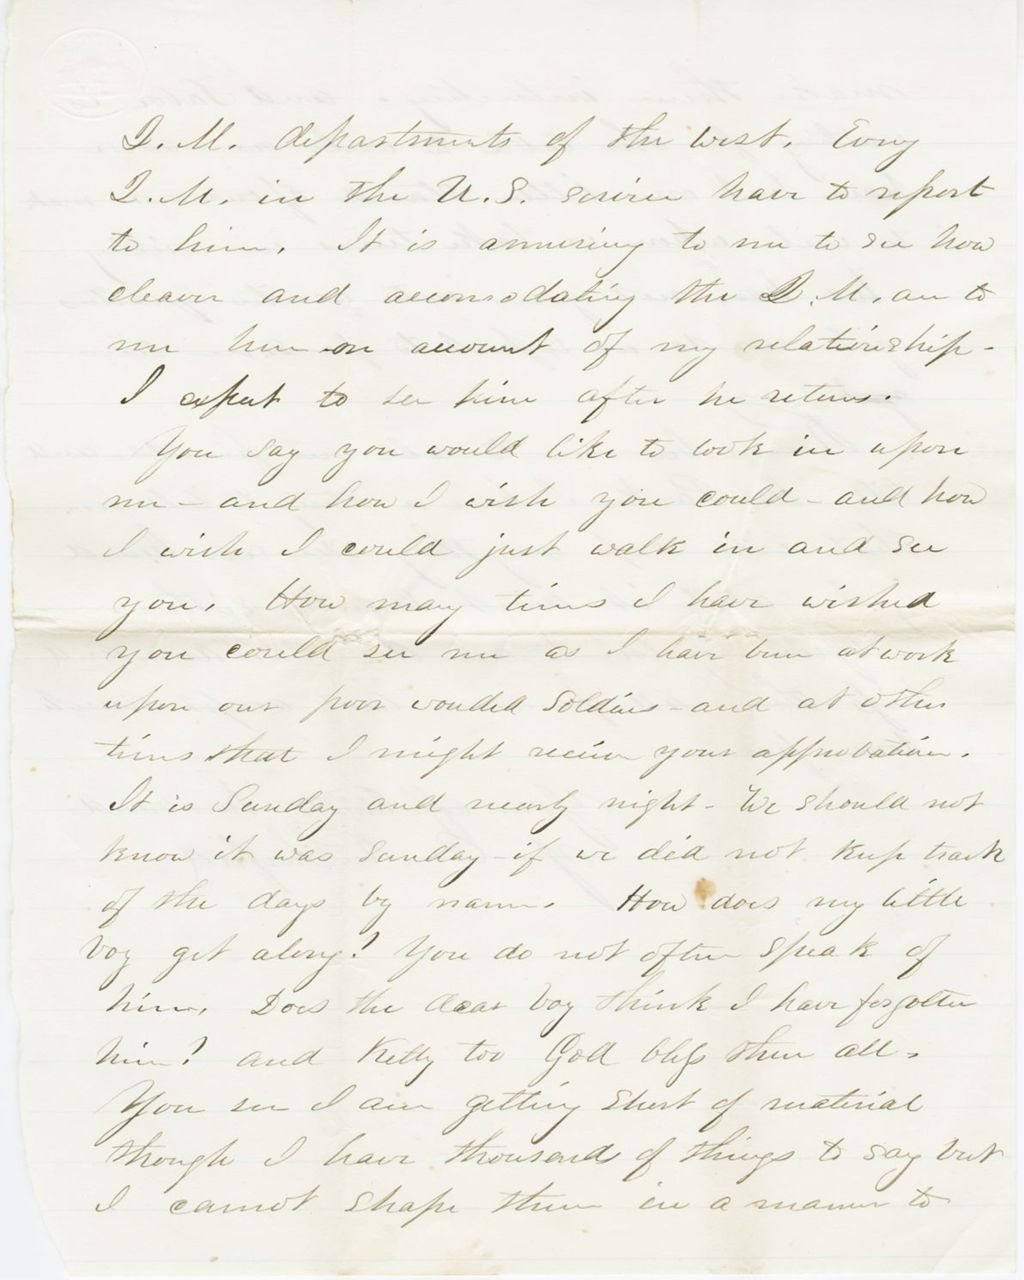 Q. M. departments of the west. Evry
Q. M. in the U. S. service have to report
to him. It is amusing to me to see how
cleaver and accomodating the Q. M. are to
me here on account of my relationship -
I expect to see him after he returns.
You say you would like to look in upon
me - and how I wish you could - and how
I wish I could just walk in and see
you. How many times I have wished
you could see me as I have been at work
upon our poor wouded soldiers - and at other
times that I might receive your approbation.
It is Sunday and nearly night - We should not
know it was Sunday - if we did not keep track
of the days by name. How does my little
boy get along? You do not often speak of
him. Does the dear boy think I have forgotten
him? and Kitty too God bless them all.
You see I am getting short of material
though I have thousands of things to say but
I cannot shape them in a manner to